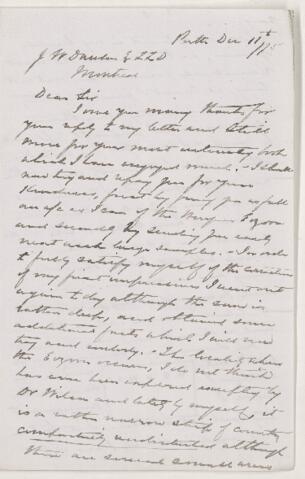 Perth Dec 11th /75
J W Dawson Esq LLD
Montreal
Dear Sir
I owe you many thanks for
your reply to my letter and still
more for your most interesting book
which I have enjoyed much. I shall
now try and repay you for your
kindness, first by giving you as full
an a/c as I can of the Eozoon
and secondly by sending you early
next week large samples. In order
to fully satisfy myself of the correctness
of my first impressions I went out
again to day although the snow is
rather deep, and obtained some
additional facts which I will now
try and embody. The locality where
the Eozoon occurs, I do not think
has ever been explored excepting by
Dr Wilson and lately by myself, it
is a rather narrow strip of country
comparatively undisturbed although
there are several small